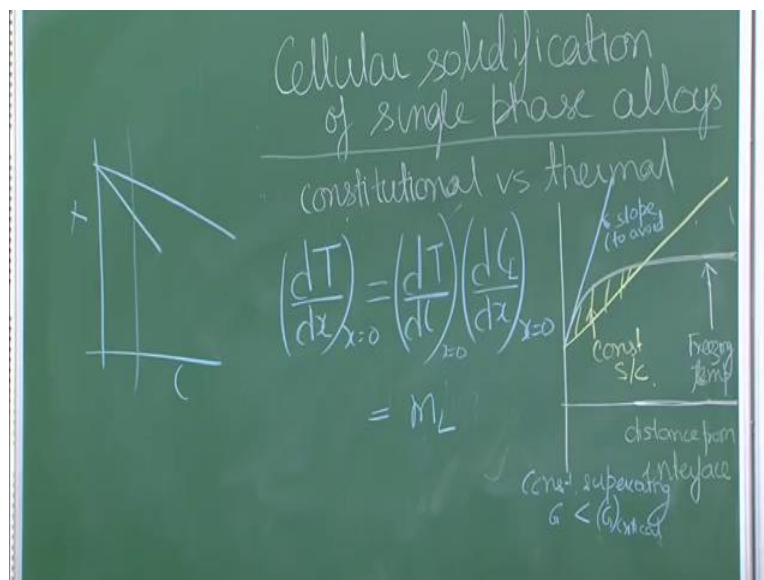 Cellular solidification
of single phase alloys
constitutional vs thermal
(dT/dx)x=0 = (dT/dC)x=0 (dCL/dx)x=0
= mL
T
C
slope
(to avoid
Const
S/C.
Freezing
temp
distance from
interface
Const.
G < (G)critical